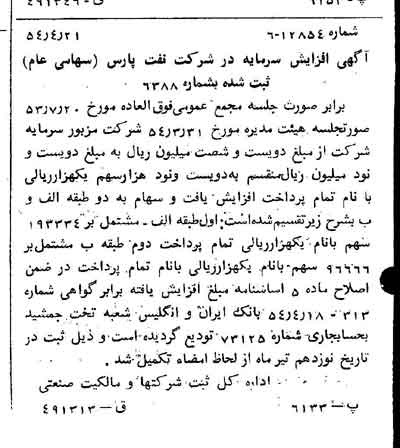 شماره ۱۲۸۵۴-۶ ۵۴٫۴٫۲۱
آگهی افزایش سرمایه در شرکت نفت پارس (سهامی عام)
ثبت شده بشماره ۶۳۸۸
برابر صورت جلسه مجمع عمومی فوق العاده مورخ ۵۳٫۷٫۲۰
صورتجلسه هیئت مدیره مورخ ۵۴٫۳٫۳۱ شرکت مزبور سرمایه
شرکت از مبلغ دویست و شصت میلیون ریال به مبلغ دویست و
نود میلیون ریال منقسم به دویست ونود هزارسهم یکهزارریالی
با نام تمام پرداخت افزایش یافت و سهام به دو طبقه الف و
ب بشرح زیر تقسیم شده است: اول طبقه الف - مشتمل بر ۱۹۳۳۳۴
سهم بانام یکهزارریالی تمام پرداخت دوم طبقه ب مشتمل بر
۹۶۶۶۶ سهم - بانام یکهزارریالی بانام تمام پرداخت در ضمن
اصلاح ماده ۵ اساسنامه مبلغ افزایش یافته برابر گواهی شماره
۳۱۳ - ۵۴٫۴٫۱۸ بانک ایران و انگلیس شعبه تخت جمشید
بحسابجاری شماره ۷۳۱۲۵ تودیع گردیده است و ذیل ثبت در
تاریخ نوزدهم تیر ماه از لحاظ امضاء تکمیل شد .
اداره کل ثبت شرکتها و مالکیت صنعتی
پ- ۶۱۳۳ ق- ۴۹۱۳۱۳